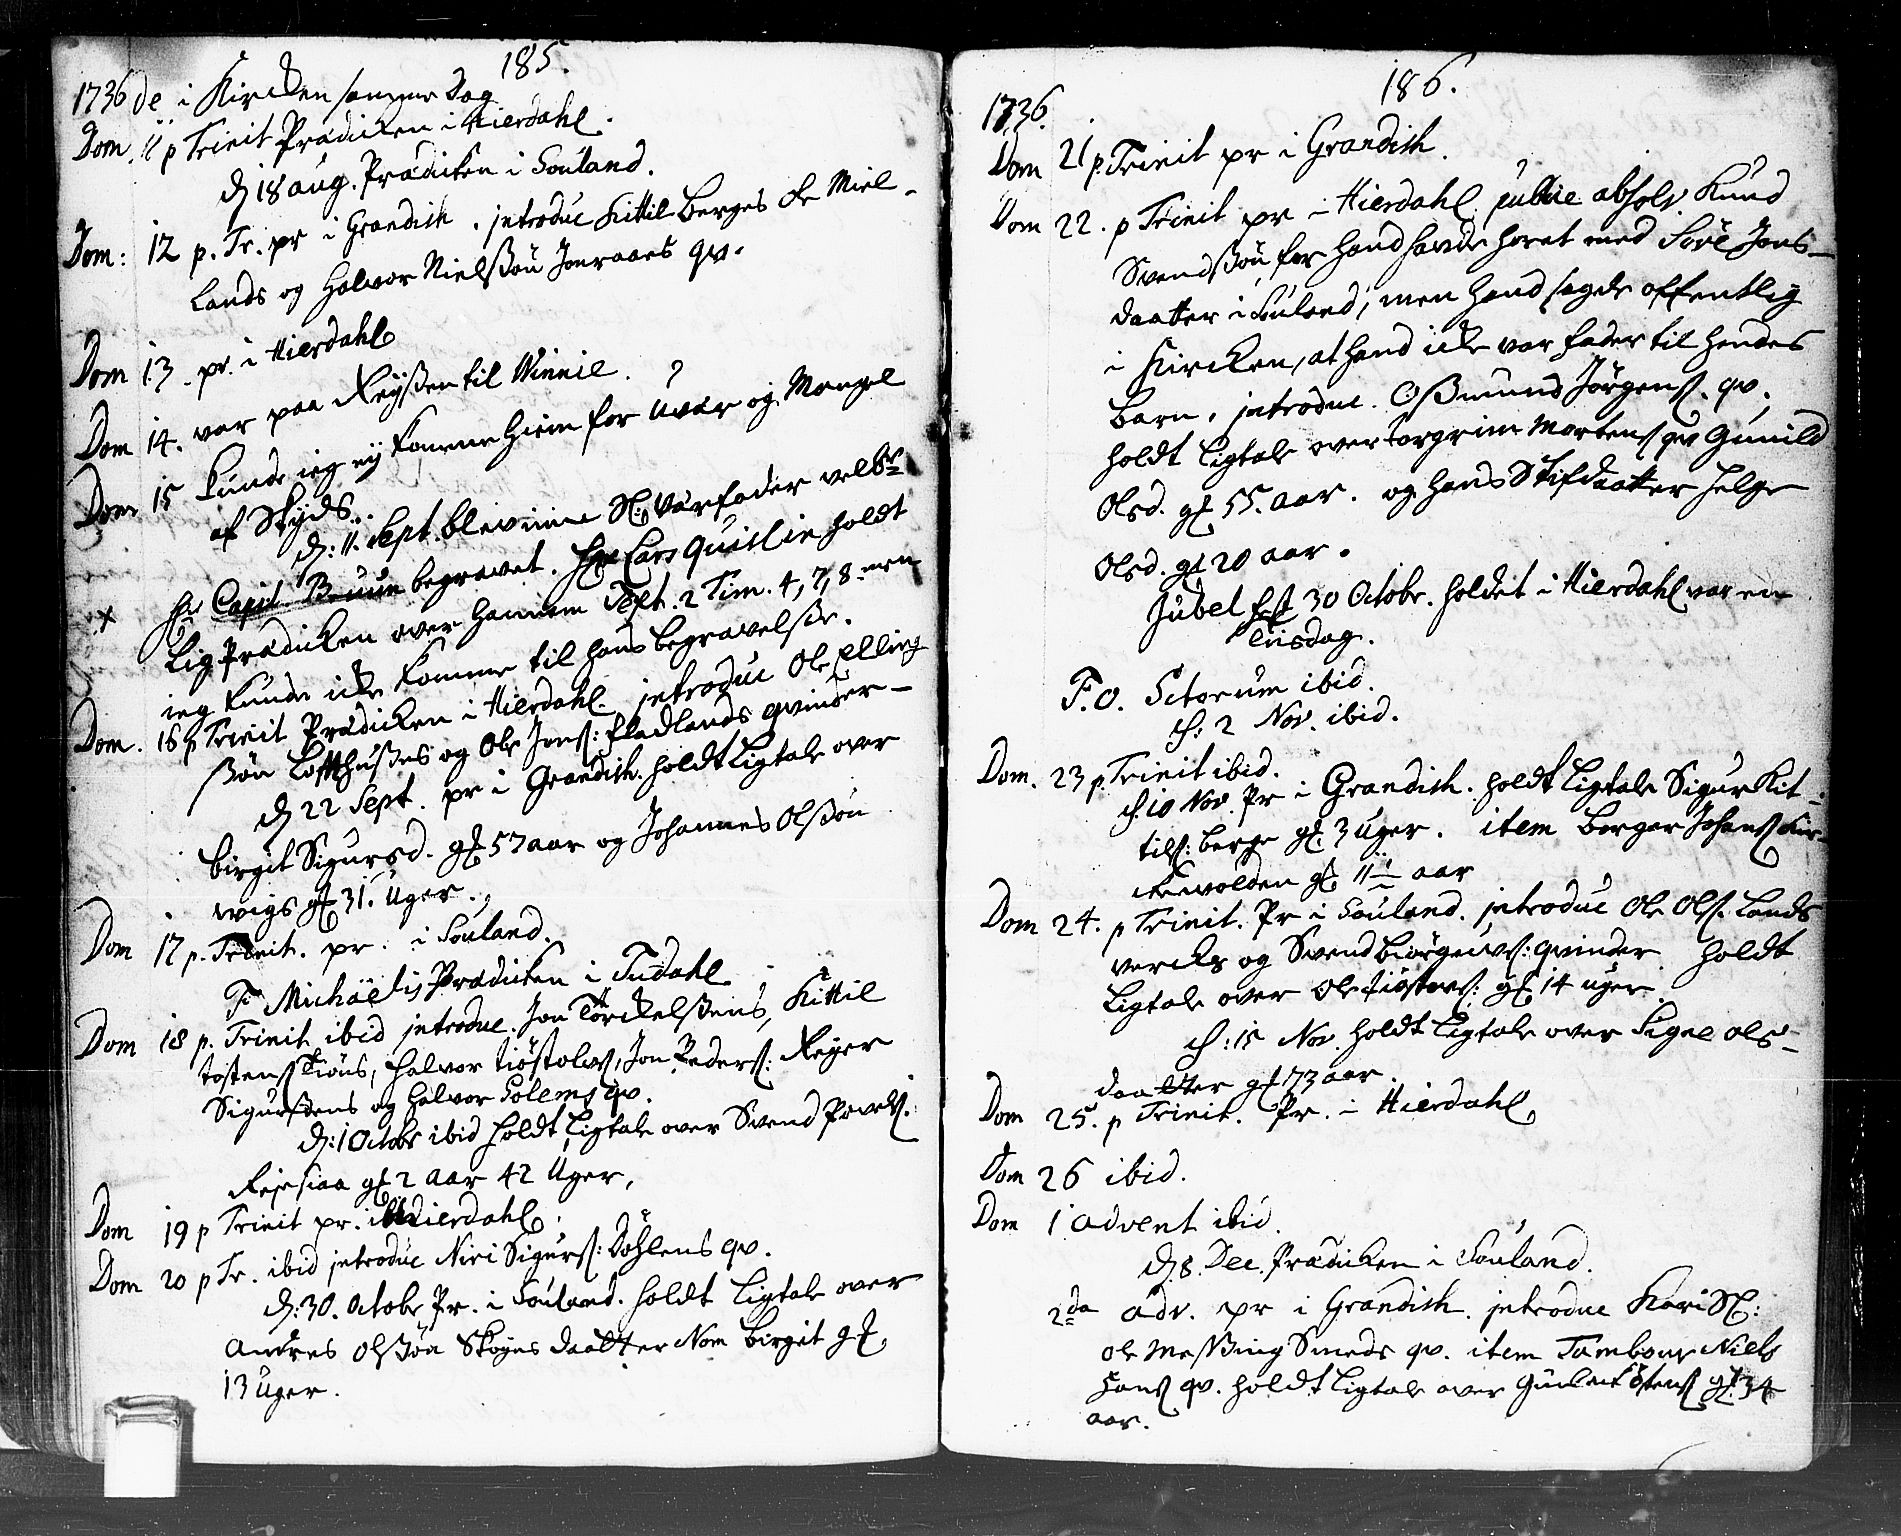 185.
1736 de i Kircken samme Dag
Dom. 11 p Trinit Prædicken i Hierdahl.
d 18 aug. Prædicken i Souland.
Dom: 12 p. Tr. pr i Grandish. introduc Kittil Berges de Miel-
lands og Halvor Nielssøn Jonraaes qv.
Dom 13. pr. i Hierdahl
Dom 14. var paa Reyssen til Winnie.
Dom 15 kunde ieg ey komme hiem for Uvær og Mangel
af Skyds.
d: 11. Sept. blev min Sl: Værfader velb:
Hr Capit Bruun begravet. Hr Lars Quislin holdt
Lig Prædicken over hannem Text. 2 Tim. 4, 7, 8. men
ieg kunde icke komme til hans begravelse.
Dom. 16 p Trinit Prædicken i Hierdahl. introduc Ole Elling
ssøn Loffthuses og Ole Jons: Fladlands qvinder-
d 22 Sept. pr i Grandish. holdt Ligtale over
Birgit Sigursd. gl 57 aar og Johannes Olssøn
wigs gl 31. Uger.
Dom 17 p. Trinit. pr. i Souland.
F Michaëlis Prædicken i Tudahl
Dom 18 p. Trinit ibid introduc. Jon Torckelssens, Kittil
Tostens Tiøns, Halvor Tiøstolvs, Jon Peders: Reyer
Sigurssens og Halvor Solems qv.
d: 1 Octobr ibid holdt Ligtale over Svend Povels.
Rejesiaa gl 2 aar 42 Uger,
Dom 19 p Trinit pr. i Hierdahl.
Dom 20 p Tr. ibid introduc Niri Sigurs: Dohlens qv.
d: 30. Octobr Pr. i Souland. holdt Ligtale over
Andres Olssøn Skoyes daatter Nom Birgit gl.
13 Uger.
186.
1736.
Dom 21 p. Trinit pr i Grandish.
Dom 22. p Trinit pr i Hierdahl. publice absolv. Knud
Svendssøn for hand havde horet med Sore Jons-
daatter i Souland, men hand sagde offentlig
i Kircken, at hand icke var fader til hendes
Barn. introduc. Ossmund Jørgens. qv.
holdt Ligtale over Torgrim Mortens qv Gunild
Olsd. gl 55. aar. og hans Stifdaatter Helge
Olsd. gl 20 aar.
Jubel fest 30 Octobr. holdet i Hierdahl var en
tiisdag.
F. O. Sctorum ibid.
d: 2 Nov. ibid.
Dom. 23 p. Trinit ibid.
d: 10 Nov. Pr i Grandish. holdt Ligtale Sigur Kit-
tils: Berge gl. 3 Uger. item Borgar Johans Kir-
ckevolden gl 11 aar
Dom 24. p Trinit. Pr i Souland. introduc Ole Ols. Lands
vercks og Svend Biørgulvs: qvinder. holdt
Ligtale over Ole Tiøstovs: gl 14 uger.
d: 15 Nov. holdt Ligtale over Signe Ols-
daatter gl 73 aar.
Dom 25. p Trinit. Pr. i Hierdahl,
Dom 26 ibid.
Dom 1 advent ibid.
d. 8. Dec. Prædicken i Souland.
2da adv. pr i Grandish. introduc Kari Sl:
Ole Messing Smeds qv. item Tambour Niels
Hans qv. holdt Ligtale over gl. 34
aar.